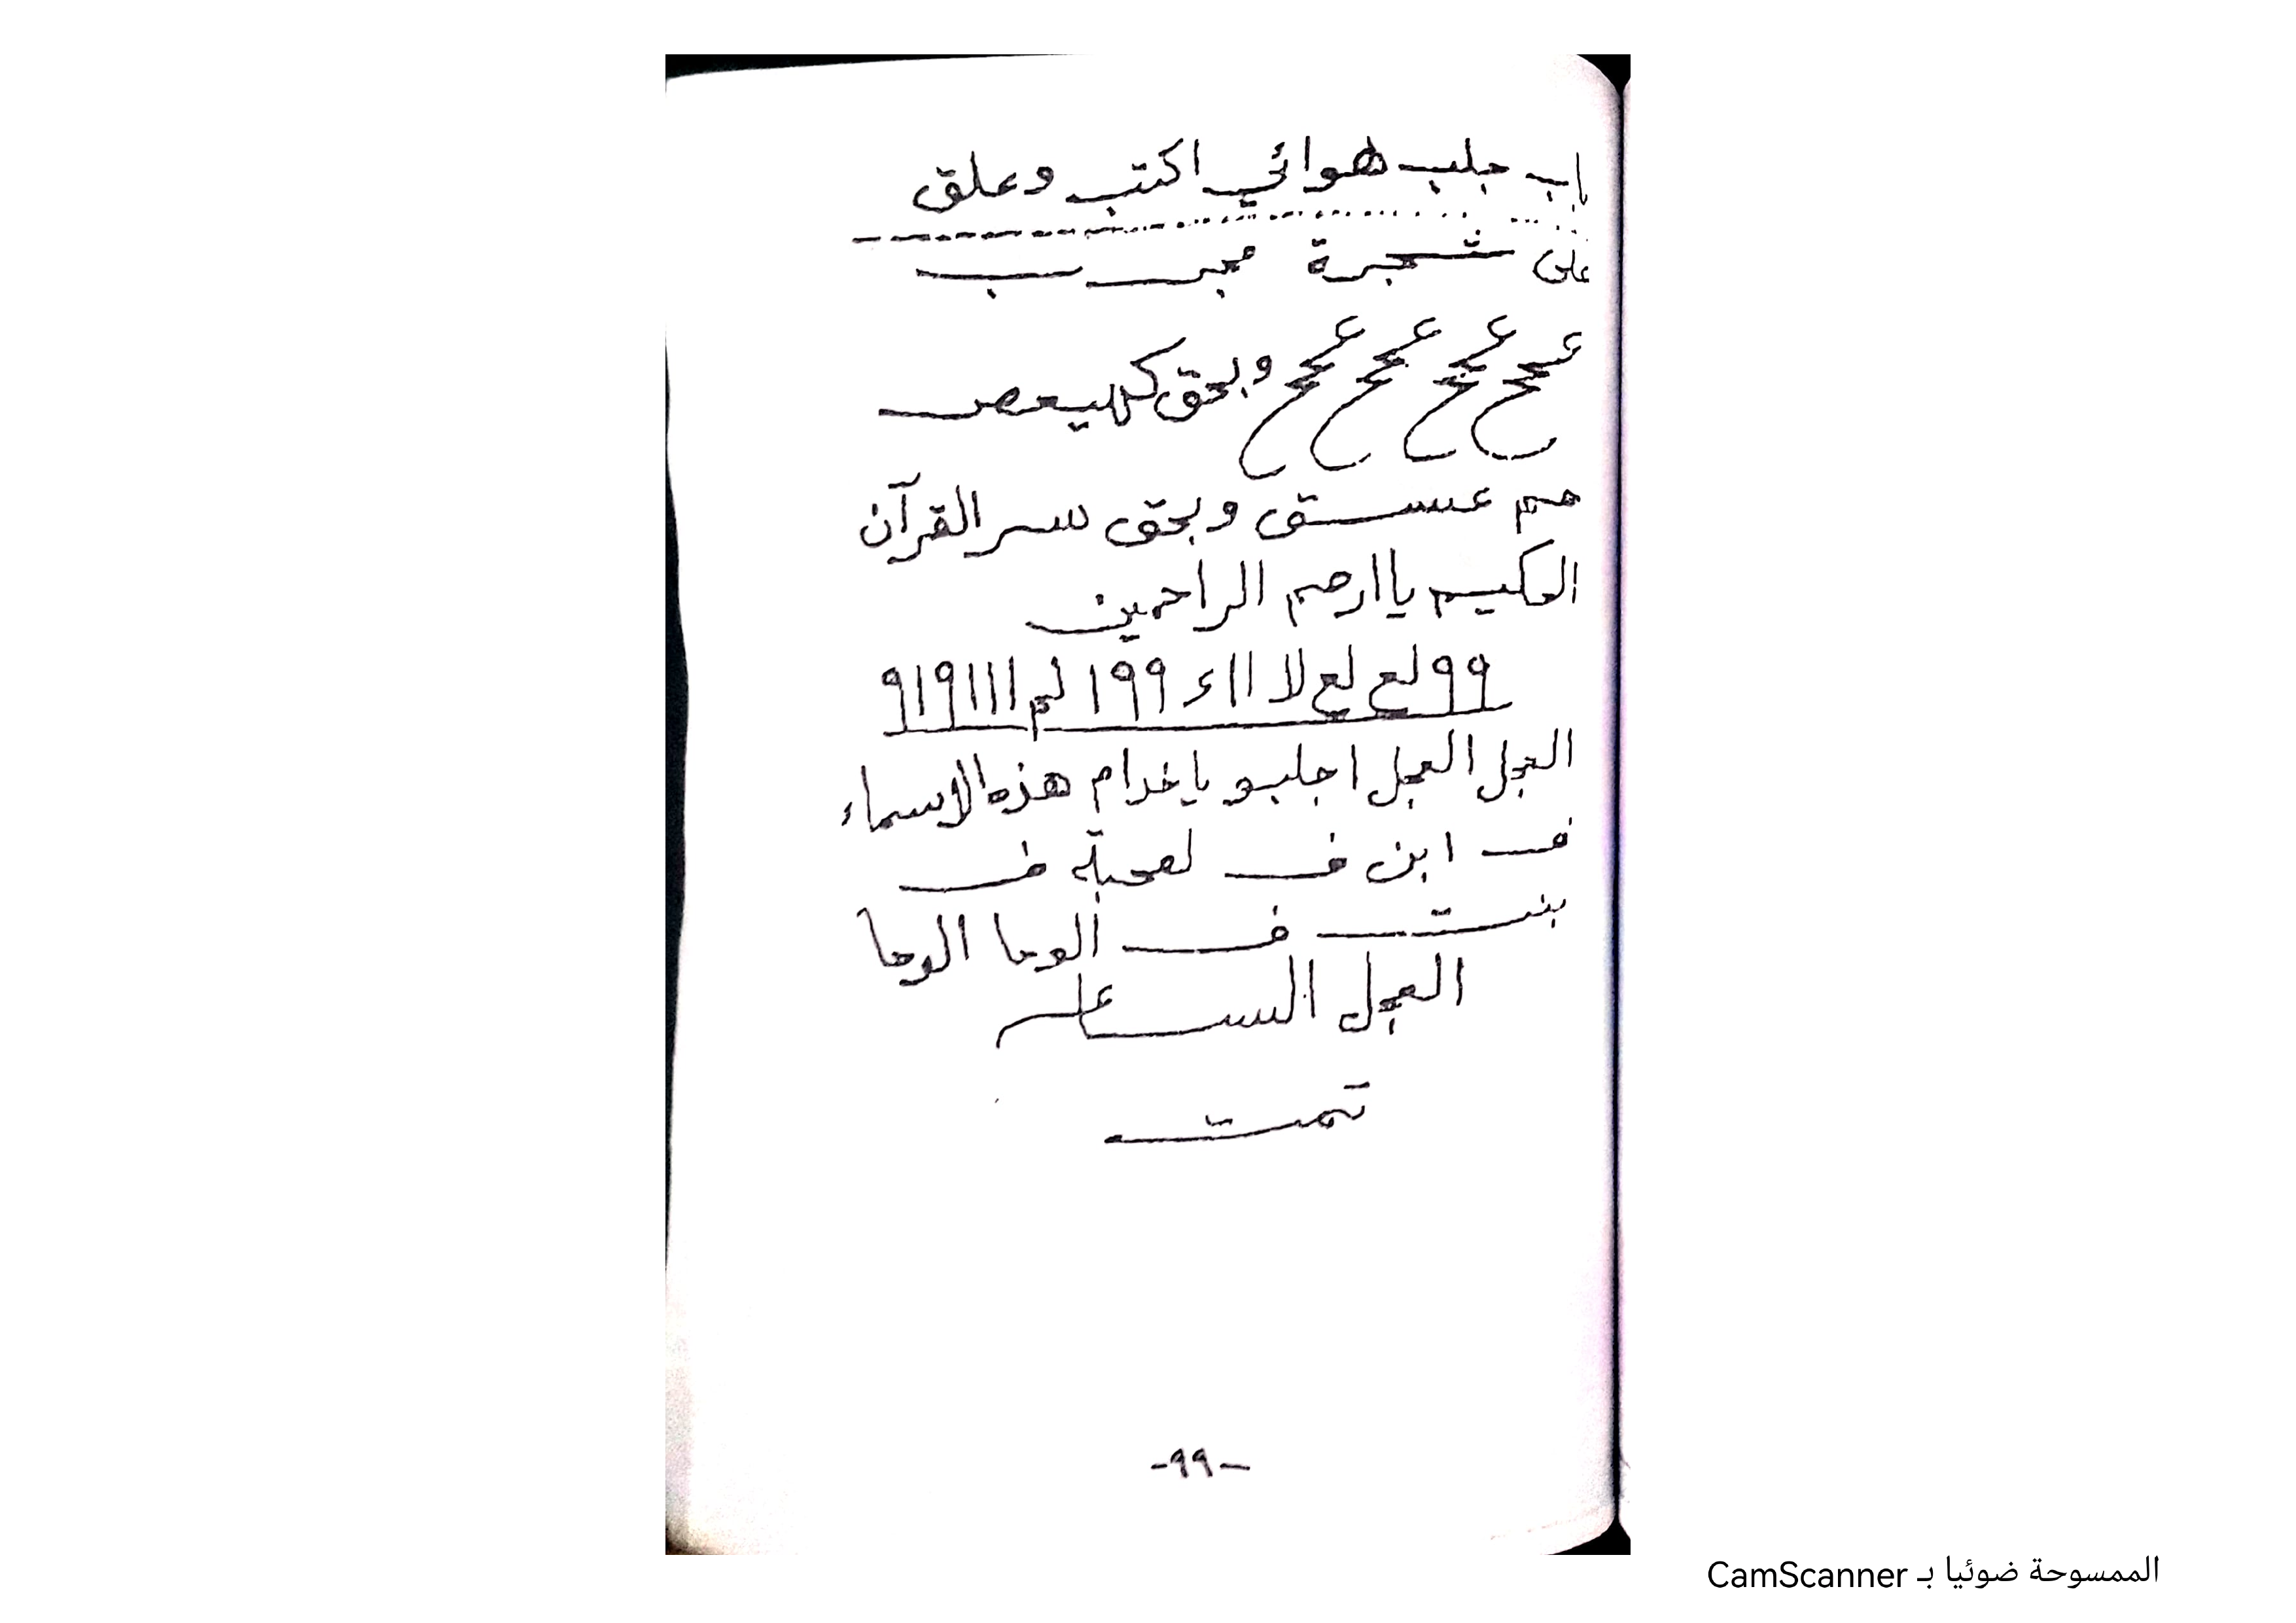 باب جلب هوائي اكتب وعلق
على شجرة مجرب
وبحق كهيعص
حم عسق وبحق سر القرآن
الحكيم ياارحم الراحمين
٩٩ لع لع لا ااء ٩٩١ لم ١١١٩١٩
العجل العجل اجلبو ياخدام هذه الاسماء
ف ابن ف لمحبة ف
بنت ف الوحا الوحا
العجل الساعه
تمت
-٩٩-
الممسوحة ضوئيا بـ CamScanner